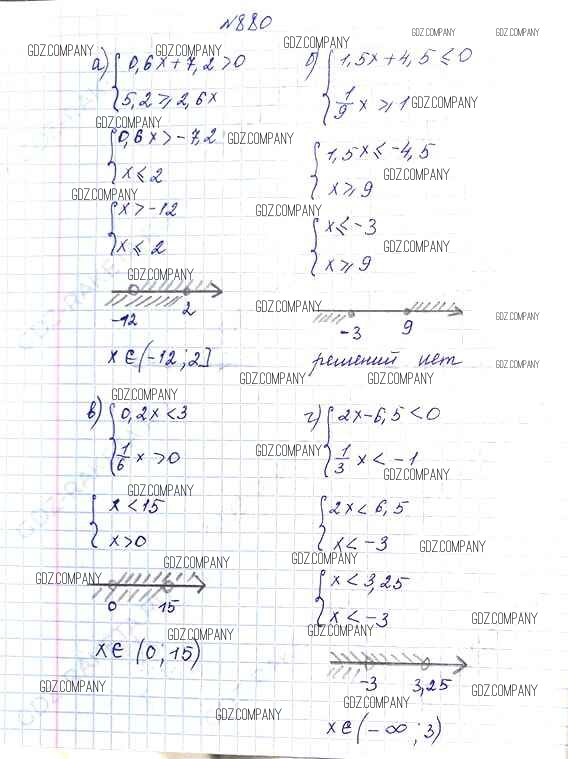 №880
а) { 0,6x + 7,2 > 0
5,2 ⩾ 2,6x
{ 0,6x > -7,2
x ⩽ 2
{ x > -12
x ⩽ 2
-12 2
x ∈ (-12; 2]
б) { 1,5x + 4,5 ⩽ 0
1/9 x ⩾ 1
{ 1,5x ⩽ -4,5
x ⩾ 9
{ x ⩽ -3
x ⩾ 9
-3 9
решений нет
в) { 0,2x < 3
1/6 x > 0
{ x < 15
x > 0
0 15
x ∈ (0; 15)
г) { 2x - 6,5 < 0
1/3 x < -1
{ 2x < 6,5
x < -3
{ x < 3,25
x < -3
-3 3,25
x ∈ (-∞; 3)
GDZ.COMPANY